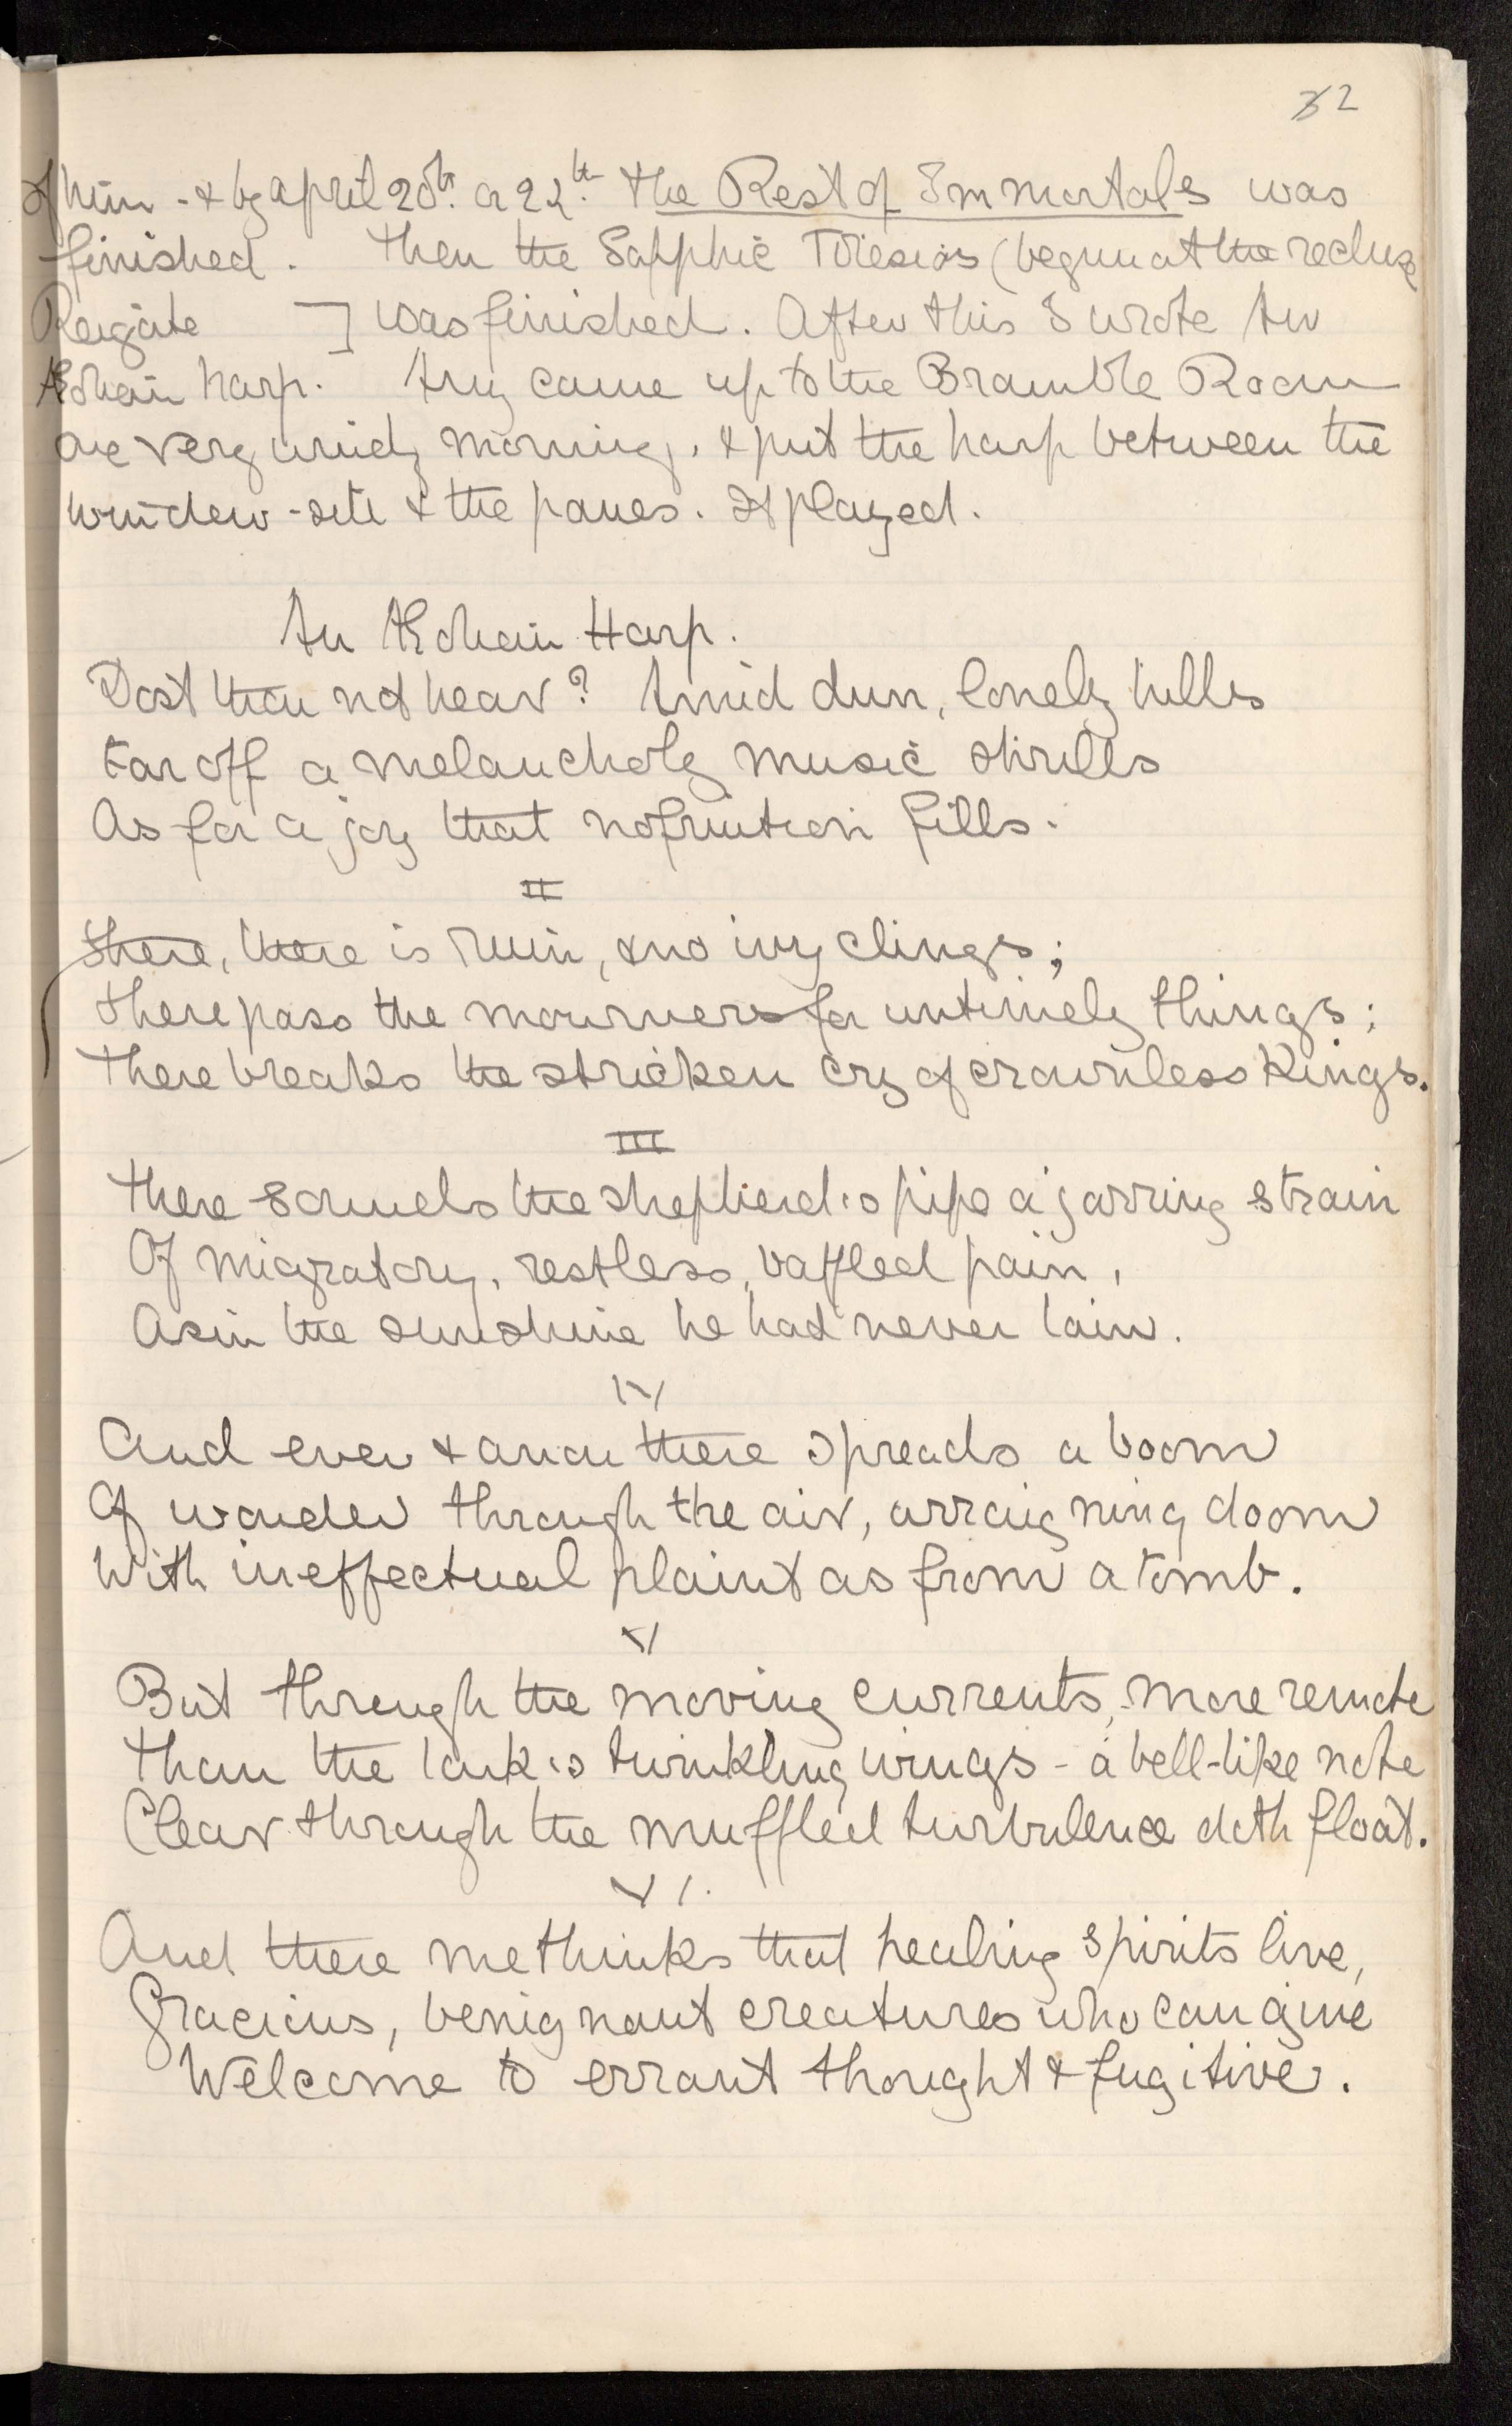 32
of him - & by April 20th. or 22th. The Rest of Immortals was
finished. Then the Sapphic Tiresias (begun at the recluse
Reigate ] was finished. After this I wrote An
Æolian harp. Amy came up to the Bramble Room
one very windy morning, & put the harp between the
window-sill & the panes. It played.
An Æolian Harp.
Dost thou not hear? Amid dun, lonely hills
Far off a melancholy music shrills
As for a joy that no fruition fills.
II
There, there is ruin, & no ivy clings;
There pass the mourners for untimely things;
There breaks the stricken cry of crownless Kings.
III
There sounds the shepherd's pipe a jarring strain
Of migratory, restless, baffled pain,
As in the sunshine he had never lain.
IV
And ever & anon there spreads a boom
Of wonder through the air, arraigning doom
With ineffectual plaint as from a tomb.
V
But through the moving currents, more remote
Than the lark's twinkling wings - a bell-like note
Clear through the muffled turbulence doth float.
VI.
And there methinks that healing spirits live,
Gracious, benignant creatures who can give
Welcome to errant thought & fugitive.